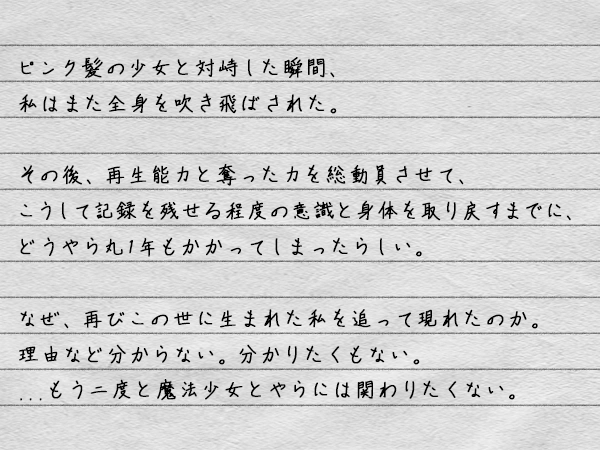 ピンク髪の少女と対峙した瞬間、
私はまた全身を吹き飛ばされた。
その後、再生能力と奪った力を総動員させて、
こうして記録を残せる程度の意識と身体を取り戻すまでに、
どうやら丸1年もかかってしまったらしい。
なぜ、再びこの世に生まれた私を追って現れたのか。
理由など分からない。分かりたくもない。
...もう二度と魔法少女とやらには関わりたくない。